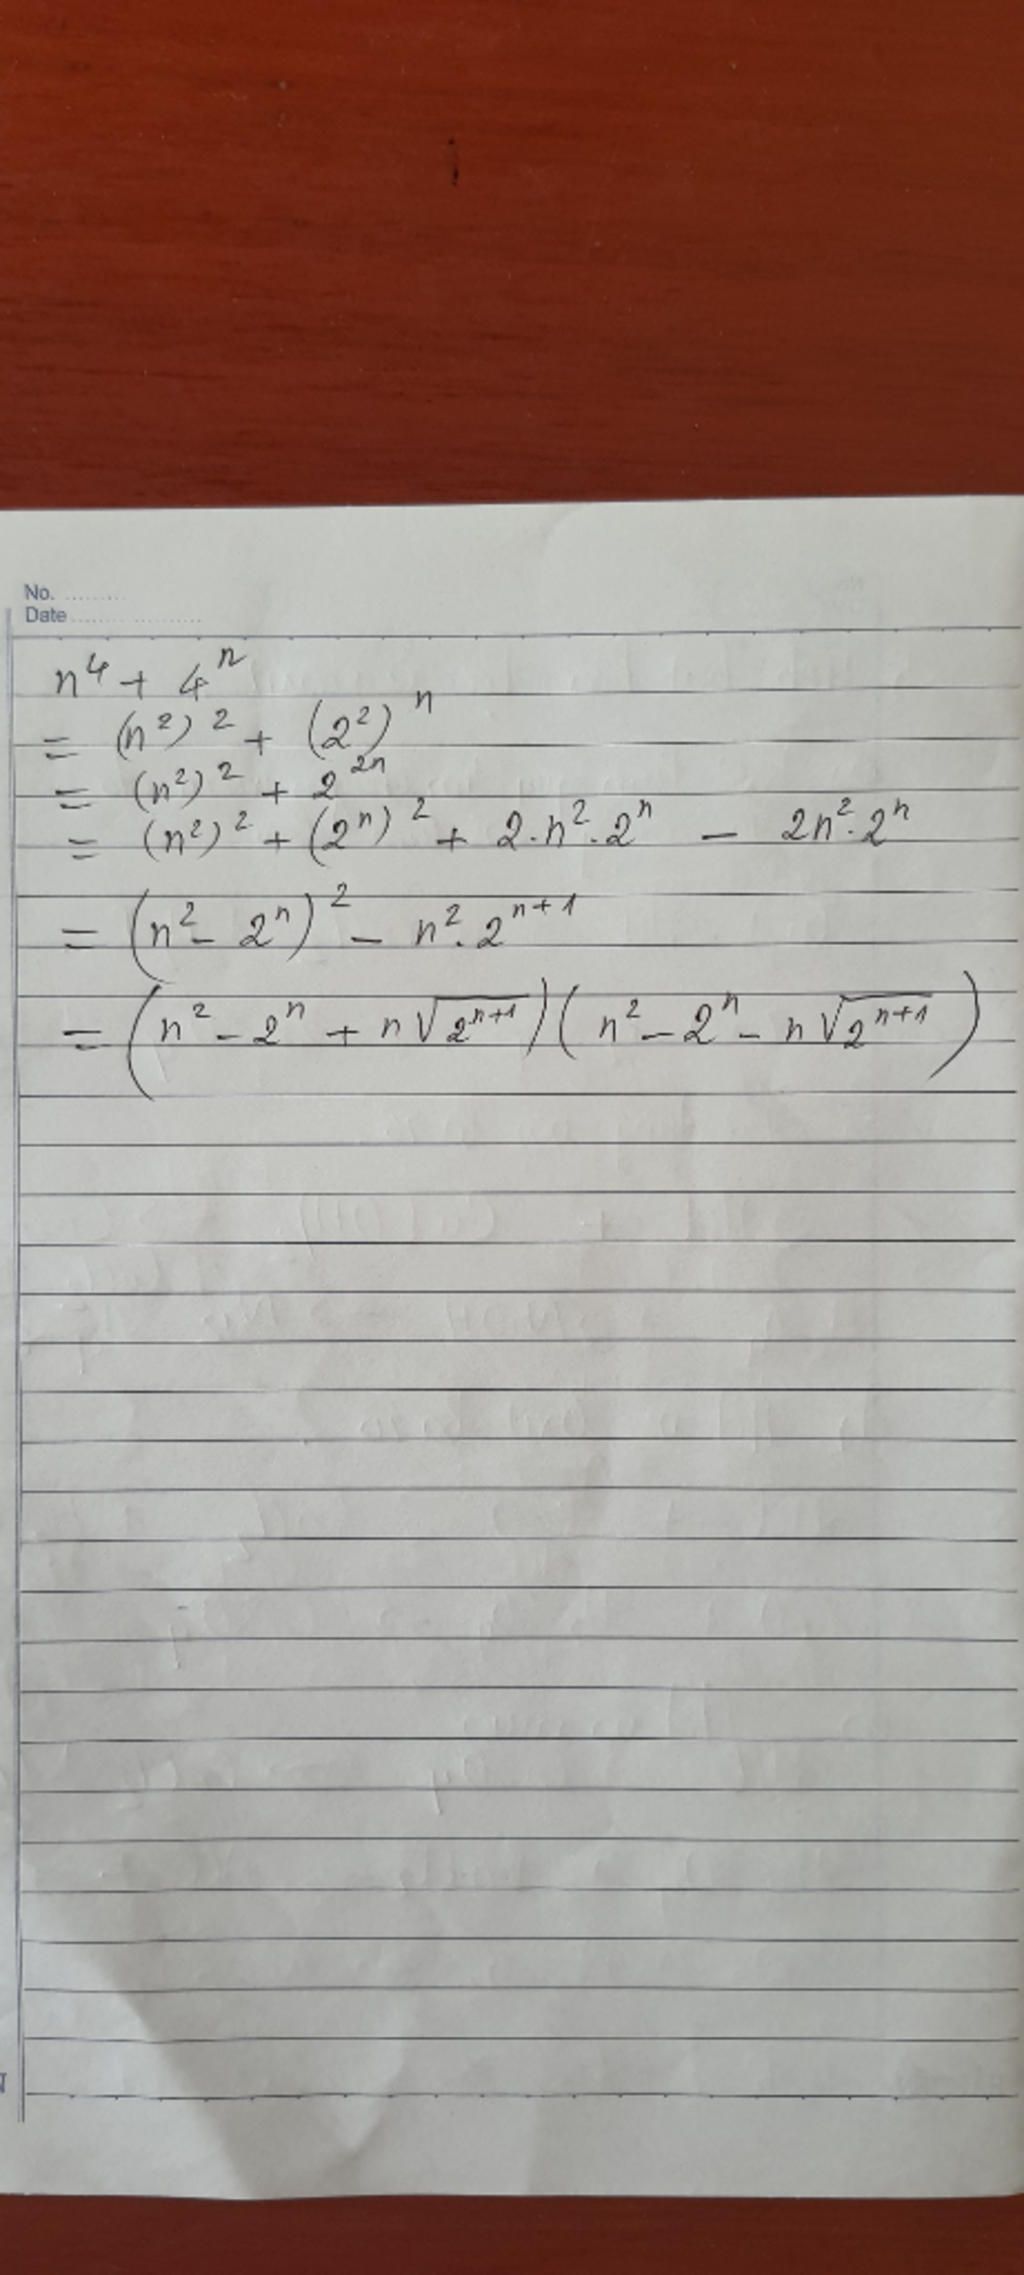 No. .........
Date .....................
n⁴ + 4ⁿ
= (n²)² + (2²)ⁿ
= (n²)² + 2²ⁿ
= (n²)² + (2ⁿ)² + 2.n².2ⁿ - 2n².2ⁿ
= (n² - 2ⁿ)² - n².2ⁿ⁺¹
= (n² - 2ⁿ + n√(2ⁿ⁺¹))(n² - 2ⁿ - n√(2ⁿ⁺¹))